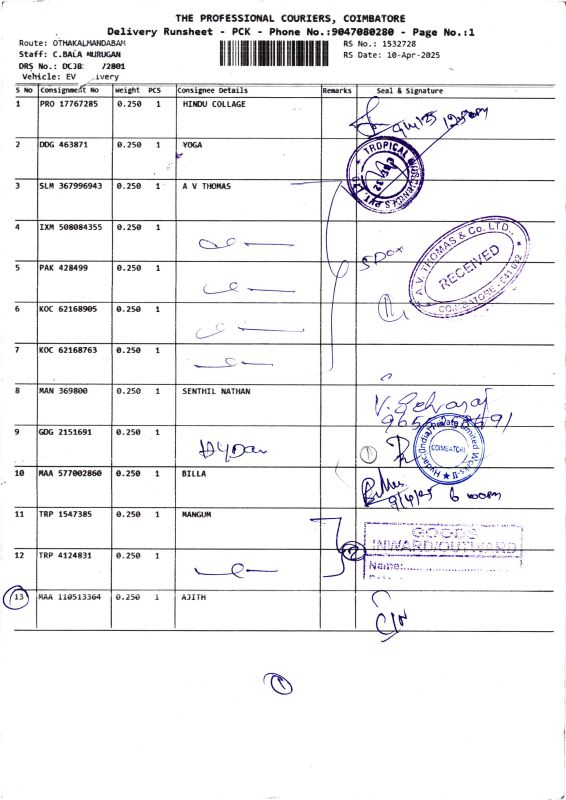 THE PROFESSIONAL COURIERS, COIMBATORE
Delivery Runsheet - PCK - Phone No.:9047080280 - Page No.:1
Route: OTHAKALMANDABAM
Staff: C.BALA MURUGAN
DRS No.: DCJB /2801
Vehicle: EV ivery
RS No.: 1532728
RS Date: 10-Apr-2025
S No Consignment No Weight PCS Consignee Details Remarks Seal & Signature
1 PRO 17767285 0.250 1 HINDU COLLAGE
2 DDG 463871 0.250 1 YOGA
TROPICAL BIOSCIENCES PVT. LTD
3 SLM 367996943 0.250 1 A V THOMAS
4 IXM 508084355 0.250 1
A.V. THOMAS & Co. LTD.,
RECEIVED
COIMBATORE - 641 032
5 PAK 428499 0.250 1
6 KOC 62168905 0.250 1
7 KOC 62168763 0.250 1
8 MAN 369800 0.250 1 SENTHIL NATHAN
V. Selvaraj
9 GDG 2151691 0.250 1 Hydac
Hydac (India) Private Limited Works-II
COIMBATORE
10 MAA 577002860 0.250 1 BILLA
Billa 9/4/25 6 00pm
11 TRP 1547385 0.250 1 MANGUM
GOODS
INWARD/OUTWARD
Name:
12 TRP 4124831 0.250 1
13 MAA 110513364 0.250 1 AJITH
C/N
1